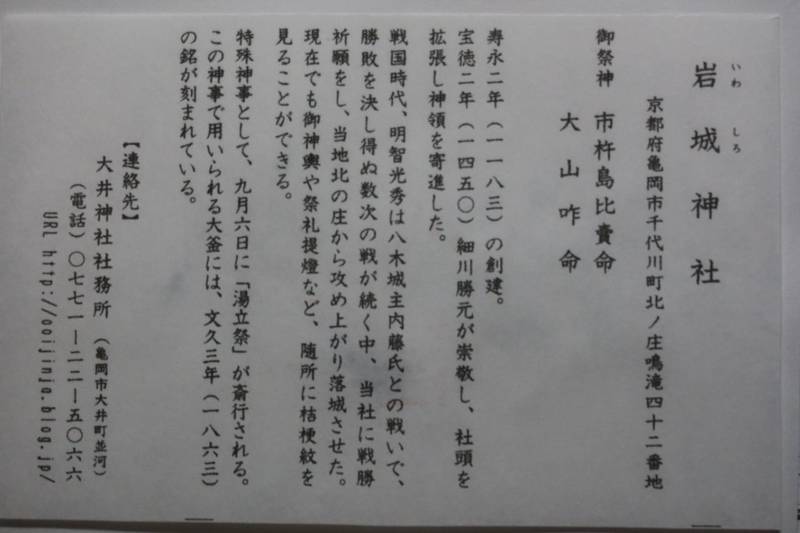 岩城神社
いわ しろ
京都府亀岡市千代川町北ノ庄鳴滝四十二番地
御祭神 市杵島比賣命
大山咋命
寿永二年（一一八三）の創建。
宝徳二年（一四五〇）細川勝元が崇敬し、社頭を
拡張し神領を寄進した。
戦国時代、明智光秀は八木城主内藤氏との戦いで、
勝敗を決し得ぬ数次の戦が続く中、当社に戦勝
祈願をし、当地北の庄から攻め上がり落城させた。
現在でも御神輿や祭礼提燈など、随所に桔梗紋を
見ることができる。
特殊神事として、九月六日に「湯立祭」が斎行される。
この神事で用いられる大釜には、文久三年（一八六三）
の銘が刻まれている。
【連絡先】
大井神社社務所（亀岡市大井町並河）
（電話）〇七七一ー二二ー五〇六六
URL http://ooijinja.blog.jp/